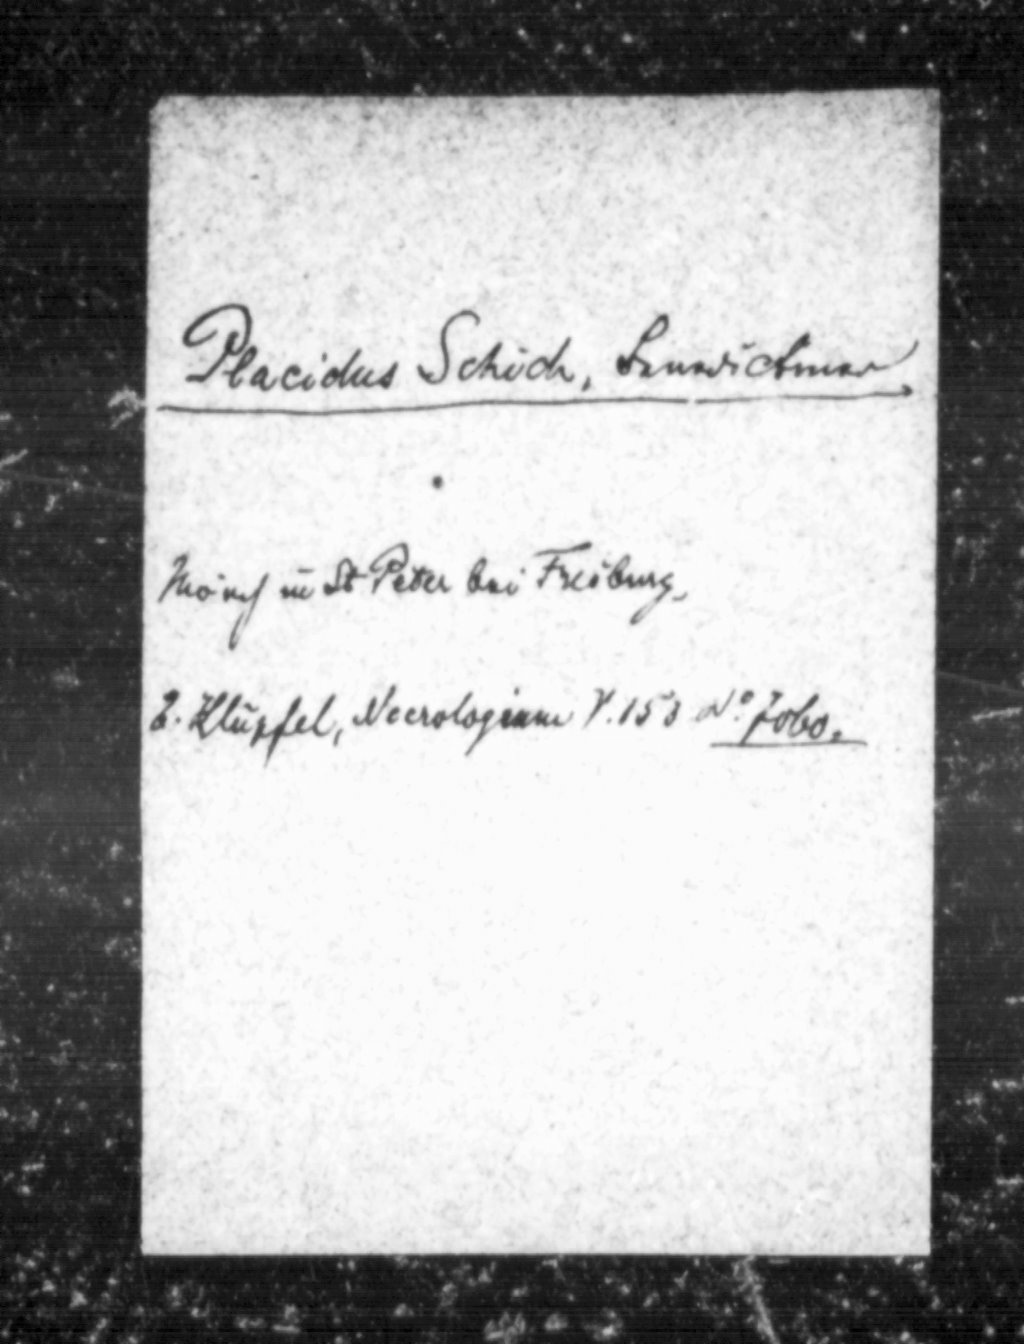 Placidus Schich, Benedictiner
Mönch in St Peter bei Freiburg,
E. Klüpfel, Necrologium P. 153 No.